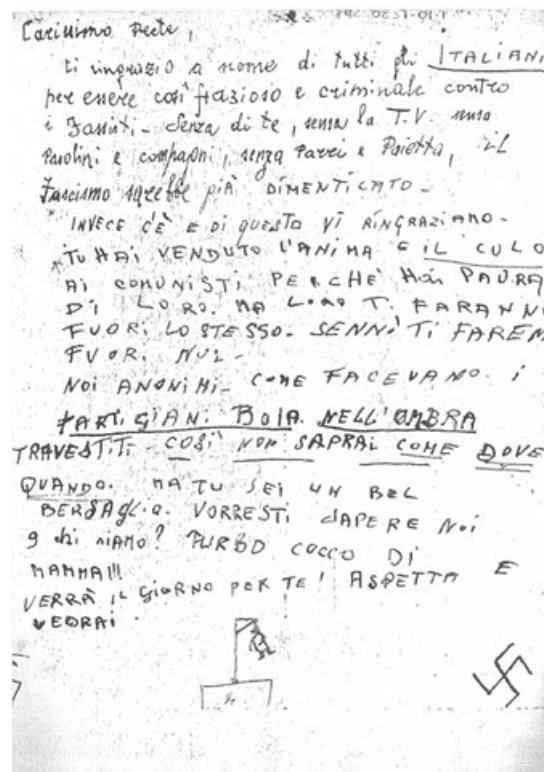 PAC 0237-01-1
Carissimo prete,
ti ringrazio a nome di tutti gli ITALIANI
per essere così fazioso e criminale contro
i Fascisti - Senza di te, senza la T.V. senza
Pasolini e compagni, senza Parri e Paietta, il
Fascismo sarebbe già DIMENTICATO -
INVECE C'È E DI QUESTO VI RINGRAZIAMO -
TU HAI VENDUTO L'ANIMA E IL CULO
AI COMUNISTI PERCHÈ HAI PAURA
DI LORO. MA LORO TI FARANNO
FUORI LO STESSO - SENNÒ TI FAREM
FUORI NOI -
NOI ANONIMI - COME FACEVANO I
PARTIGIANI BOIA NELL'OMBRA
TRAVESTITI COSÌ NON SAPRAI COME DOVE
QUANDO. MA TU SEI UN BEL
BERSAGLIO. VORRESTI SAPERE NOI
chi siamo? FURBO COCCO DI
MAMMA!!!
VERRÀ IL GIORNO PER TE! ASPETTA E
VEDRAI